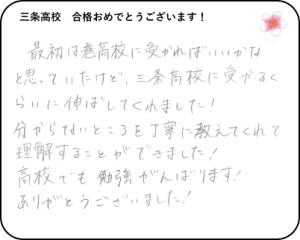 三条高校　合格おめでとうございます！
最初は巻高校に受かればいいかな
と思っていたけど、三条高校に受かるく
らいに伸ばしてくれました！
分からないところを丁寧に教えてくれて
理解することができました！
高校でも勉強がんばります！
ありがとうございました！